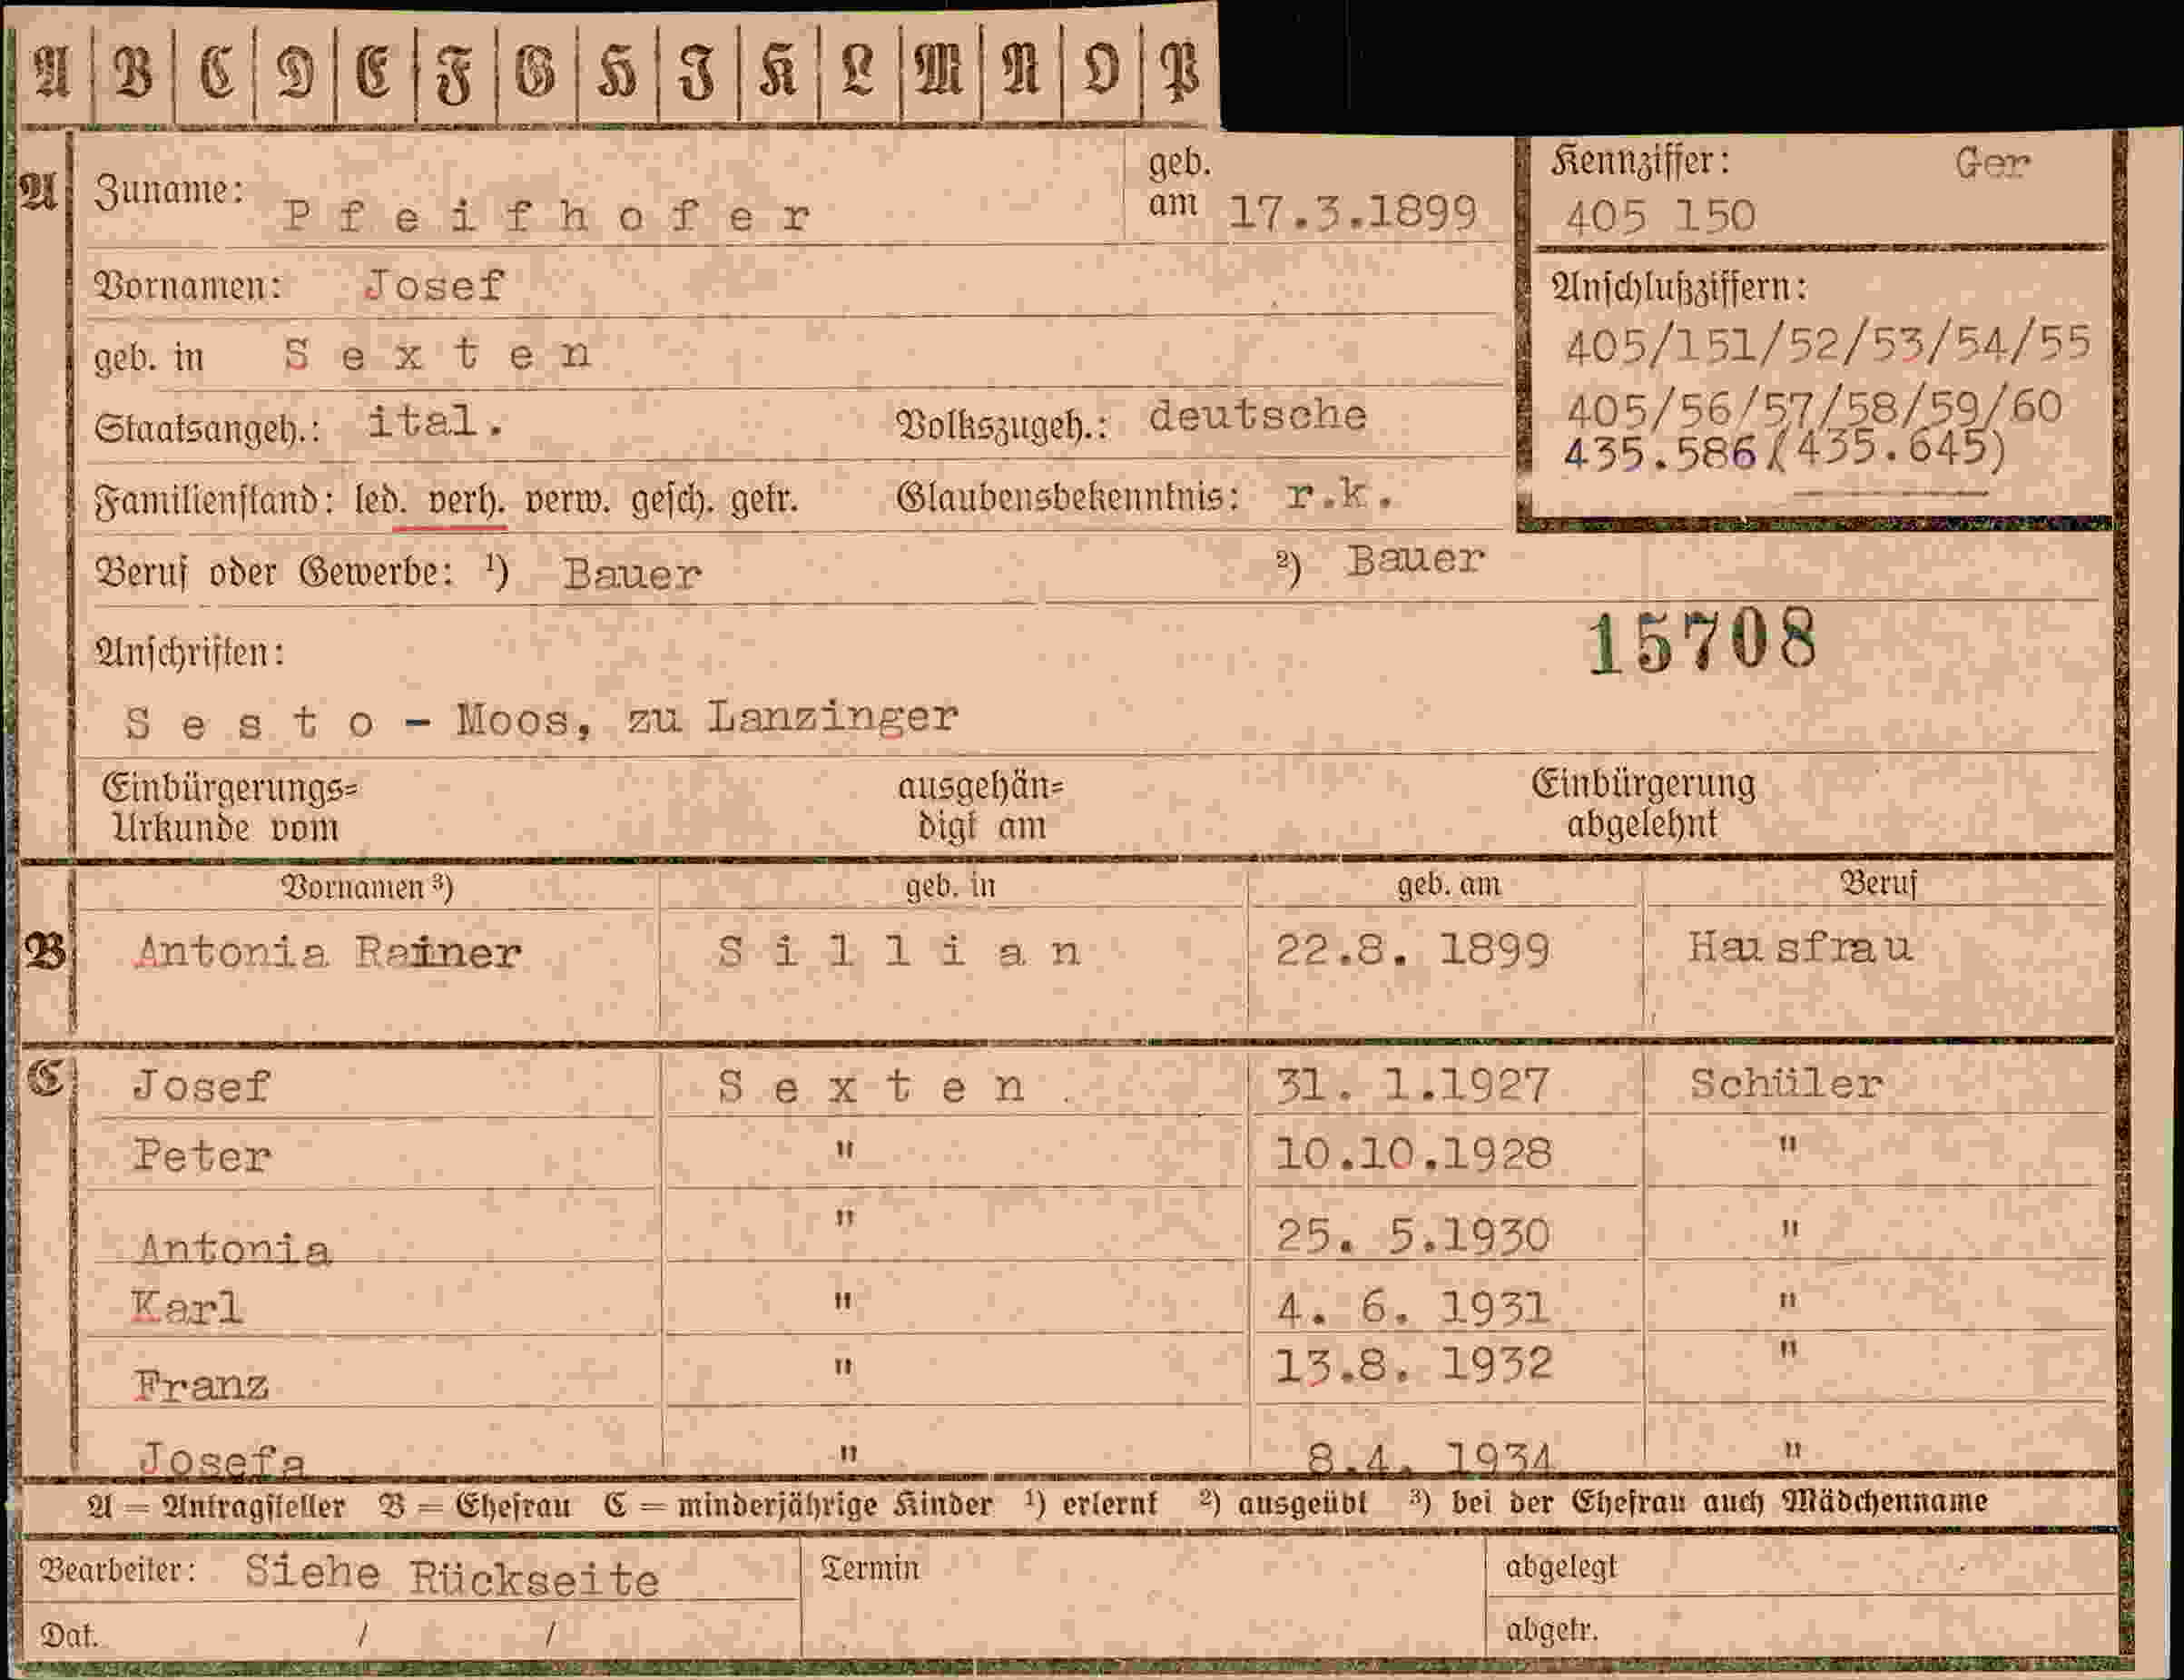 A B C D E F G H I K L M N O P
A Zuname: Pfeifhofer geb. am 17.3.1899
Kennziffer: Ger
405 150
Vornamen: Josef
Anschlußziffern:
405/151/52/53/54/55
405/56/57/58/59/60
435.586/(435.645)
geb. in Sexten
Staatsangeh.: ital. Volkszugeh.: deutsche
Familienstand: led. verh. verw. gesch. getr. Glaubensbekenntnis: r.k.
Beruf oder Gewerbe: ¹) Bauer ²) Bauer
Anschriften: 15708
Sesto - Moos, zu Lanzinger
Einbürgerungs= ausgehän= Einbürgerung
Urkunde vom digt am abgelehnt
Vornamen ³) geb. in geb. am Beruf
B Antonia Rainer Sillian 22.8. 1899 Hausfrau
C Josef Sexten. 31. 1.1927 Schüler
Peter " 10.10.1928 "
Antonia " 25. 5.1930 "
Karl " 4. 6. 1931 "
Franz " 13.8. 1932 "
Josefa " 8.4. 1934 "
A = Antragsteller B = Ehefrau C = minderjährige Kinder ¹) erlernt ²) ausgeübt ³) bei der Ehefrau auch Mädchenname
Bearbeiter: Siehe Rückseite Termin abgelegt
Dat. / / abgetr.